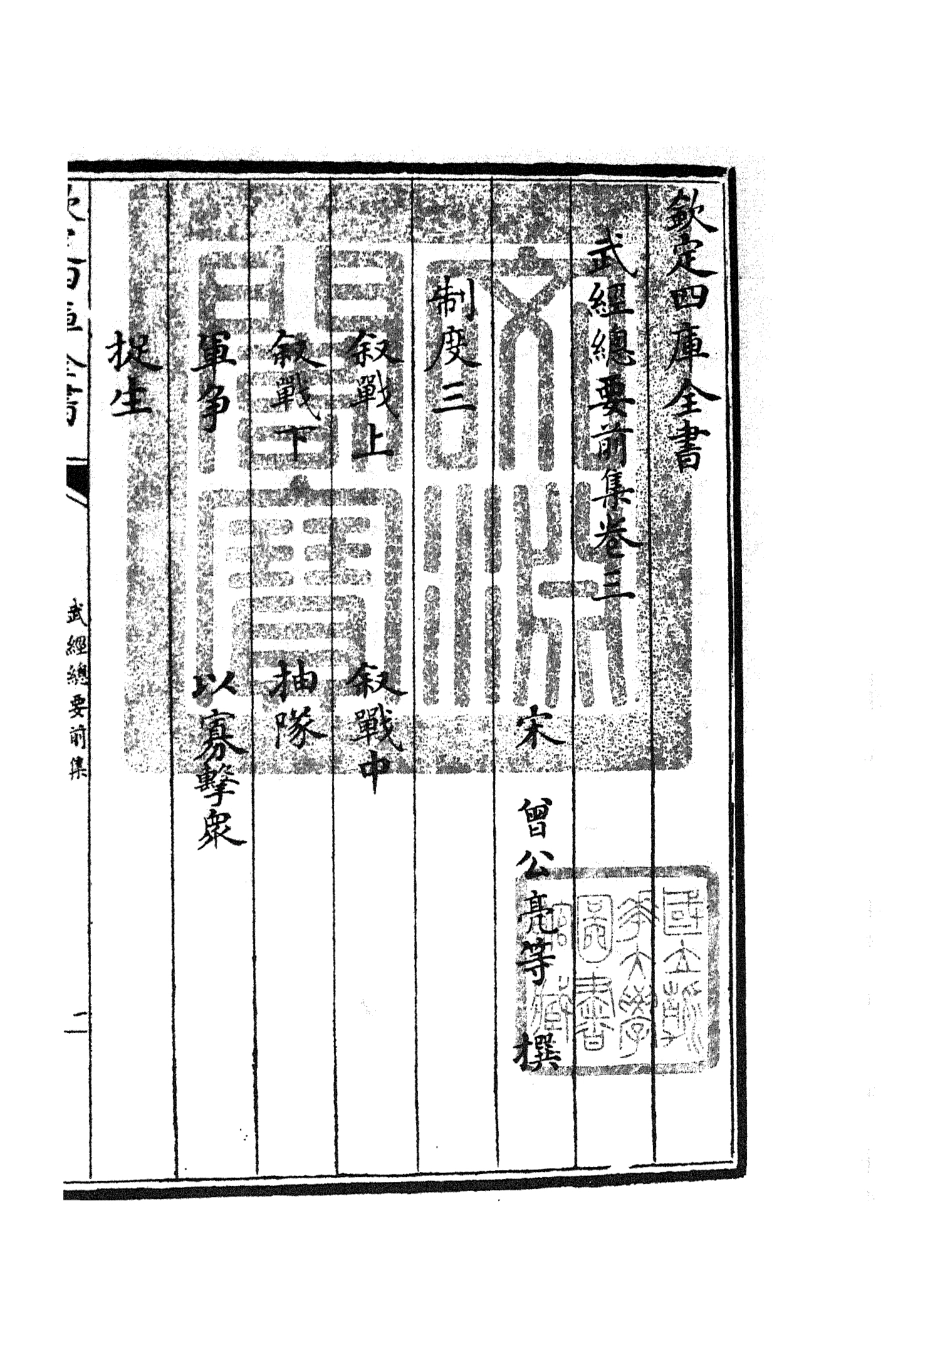 欽定四庫全書
武經總要前集卷三
宋 曾公亮等 撰
制度三
敘戰上 敘戰中
敘戰下 抽隊
軍爭 以寡擊衆
捉生
武經總要前集
二
文淵閣寶
國立浙江大學圖書館藏